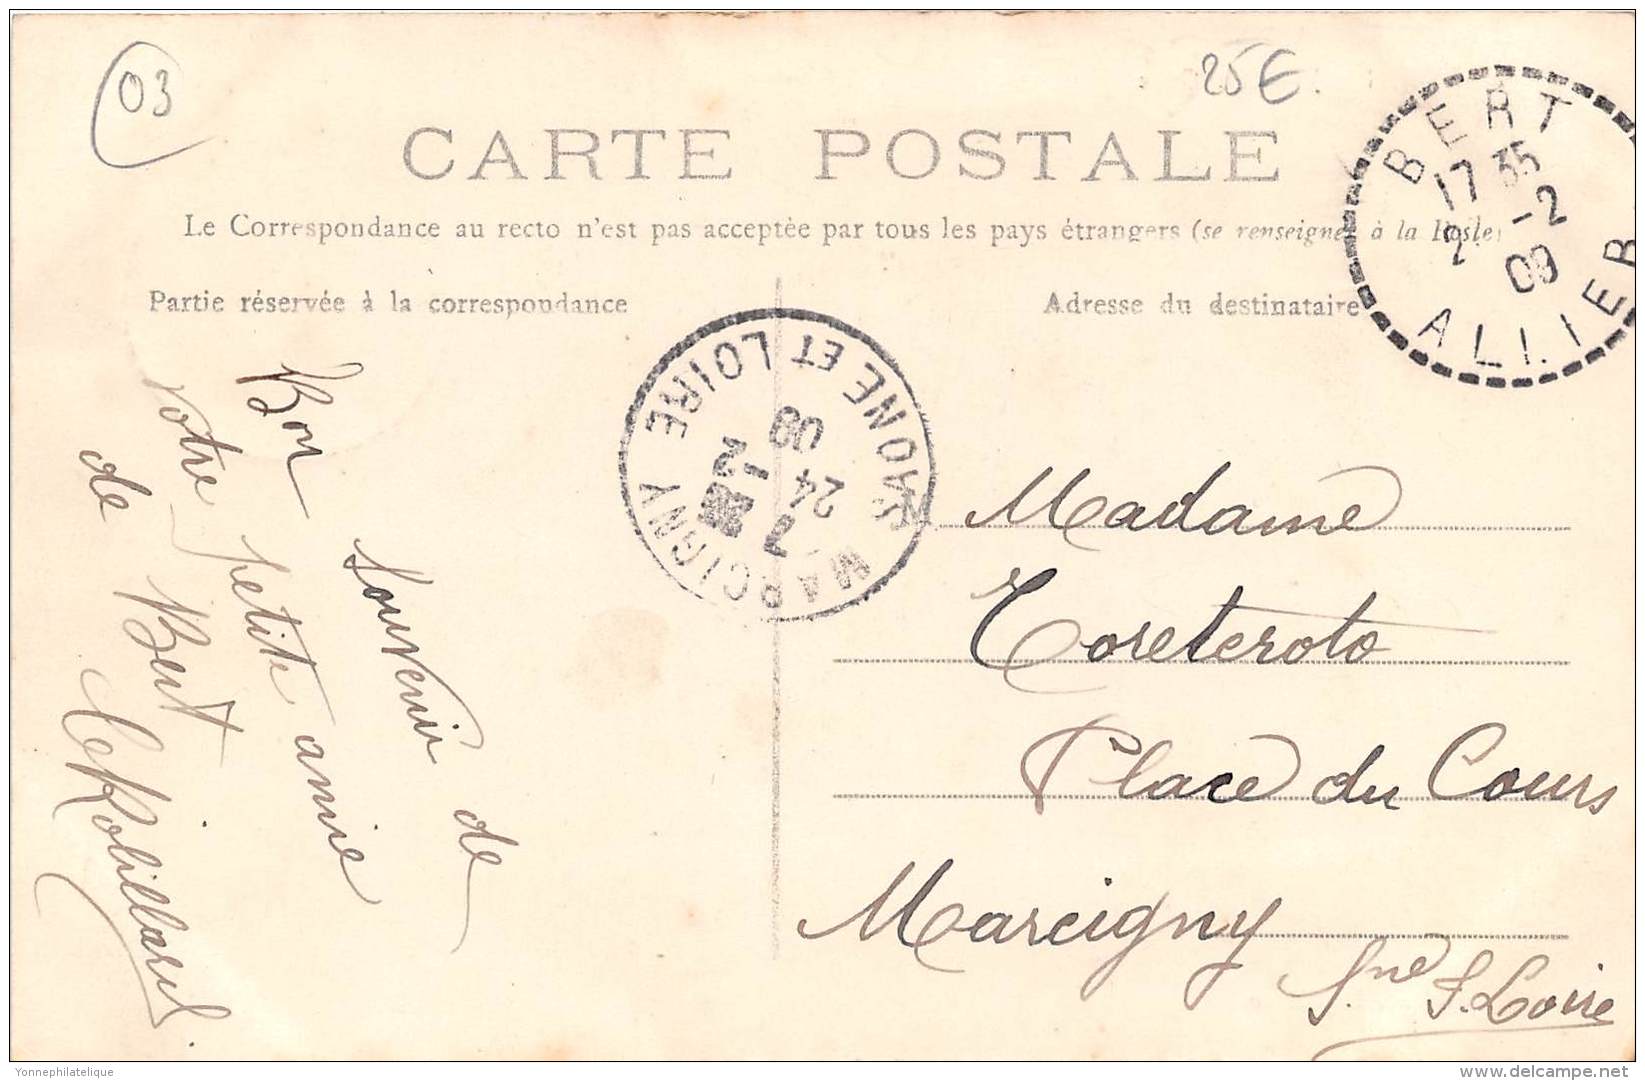 03
25€.
CARTE POSTALE
Le Correspondance au recto n'est pas acceptée par tous les pays étrangers (se renseigner à la Poste)
Partie réservée à la correspondance
Adresse du destinataire
BERT
17 35
2 -2
09
ALLIER
MARCIGNY
7
24 -2
09
SAONE ET LOIRE
Bon souvenir de
votre petite amie
de Bert
Madame
Toreteroto
Place du Cours
Marcigny
Sne & Loire
Yonnephilatelique
delcampe.net